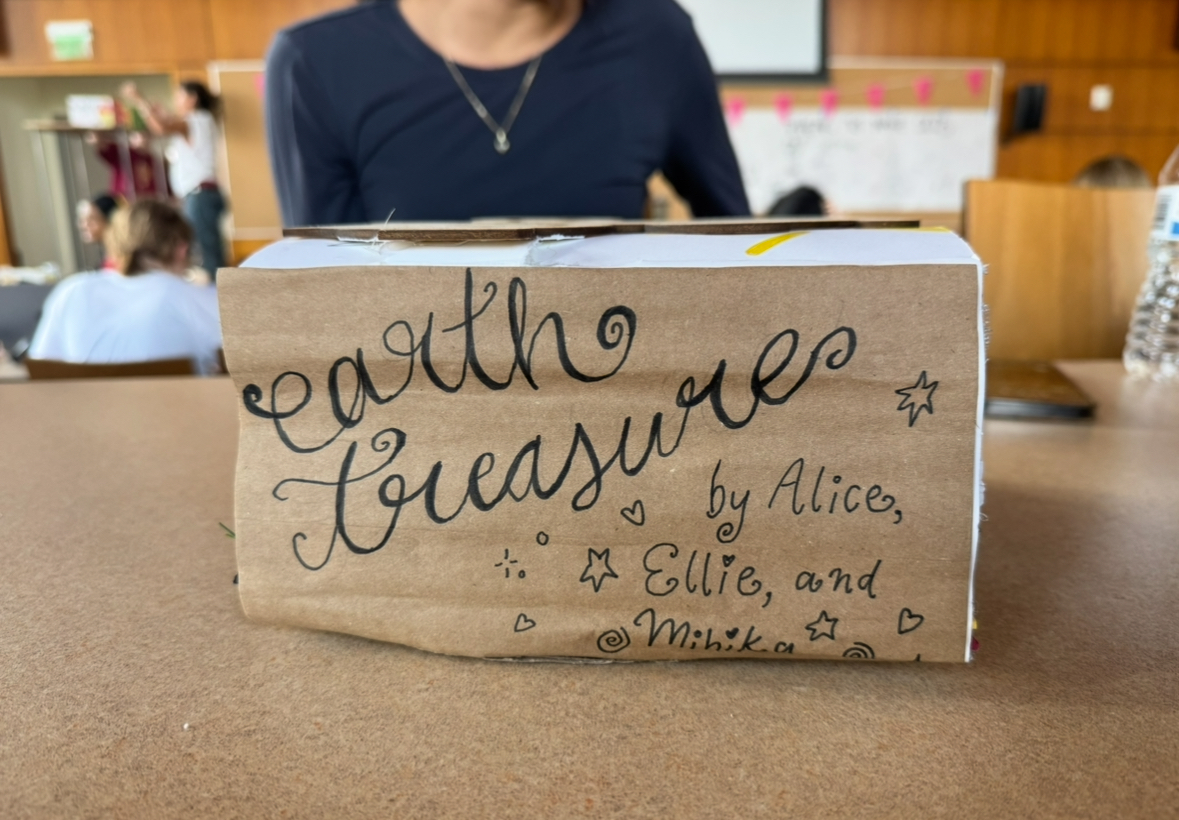 earth
treasures
by Alice,
Ellie, and
Mihika